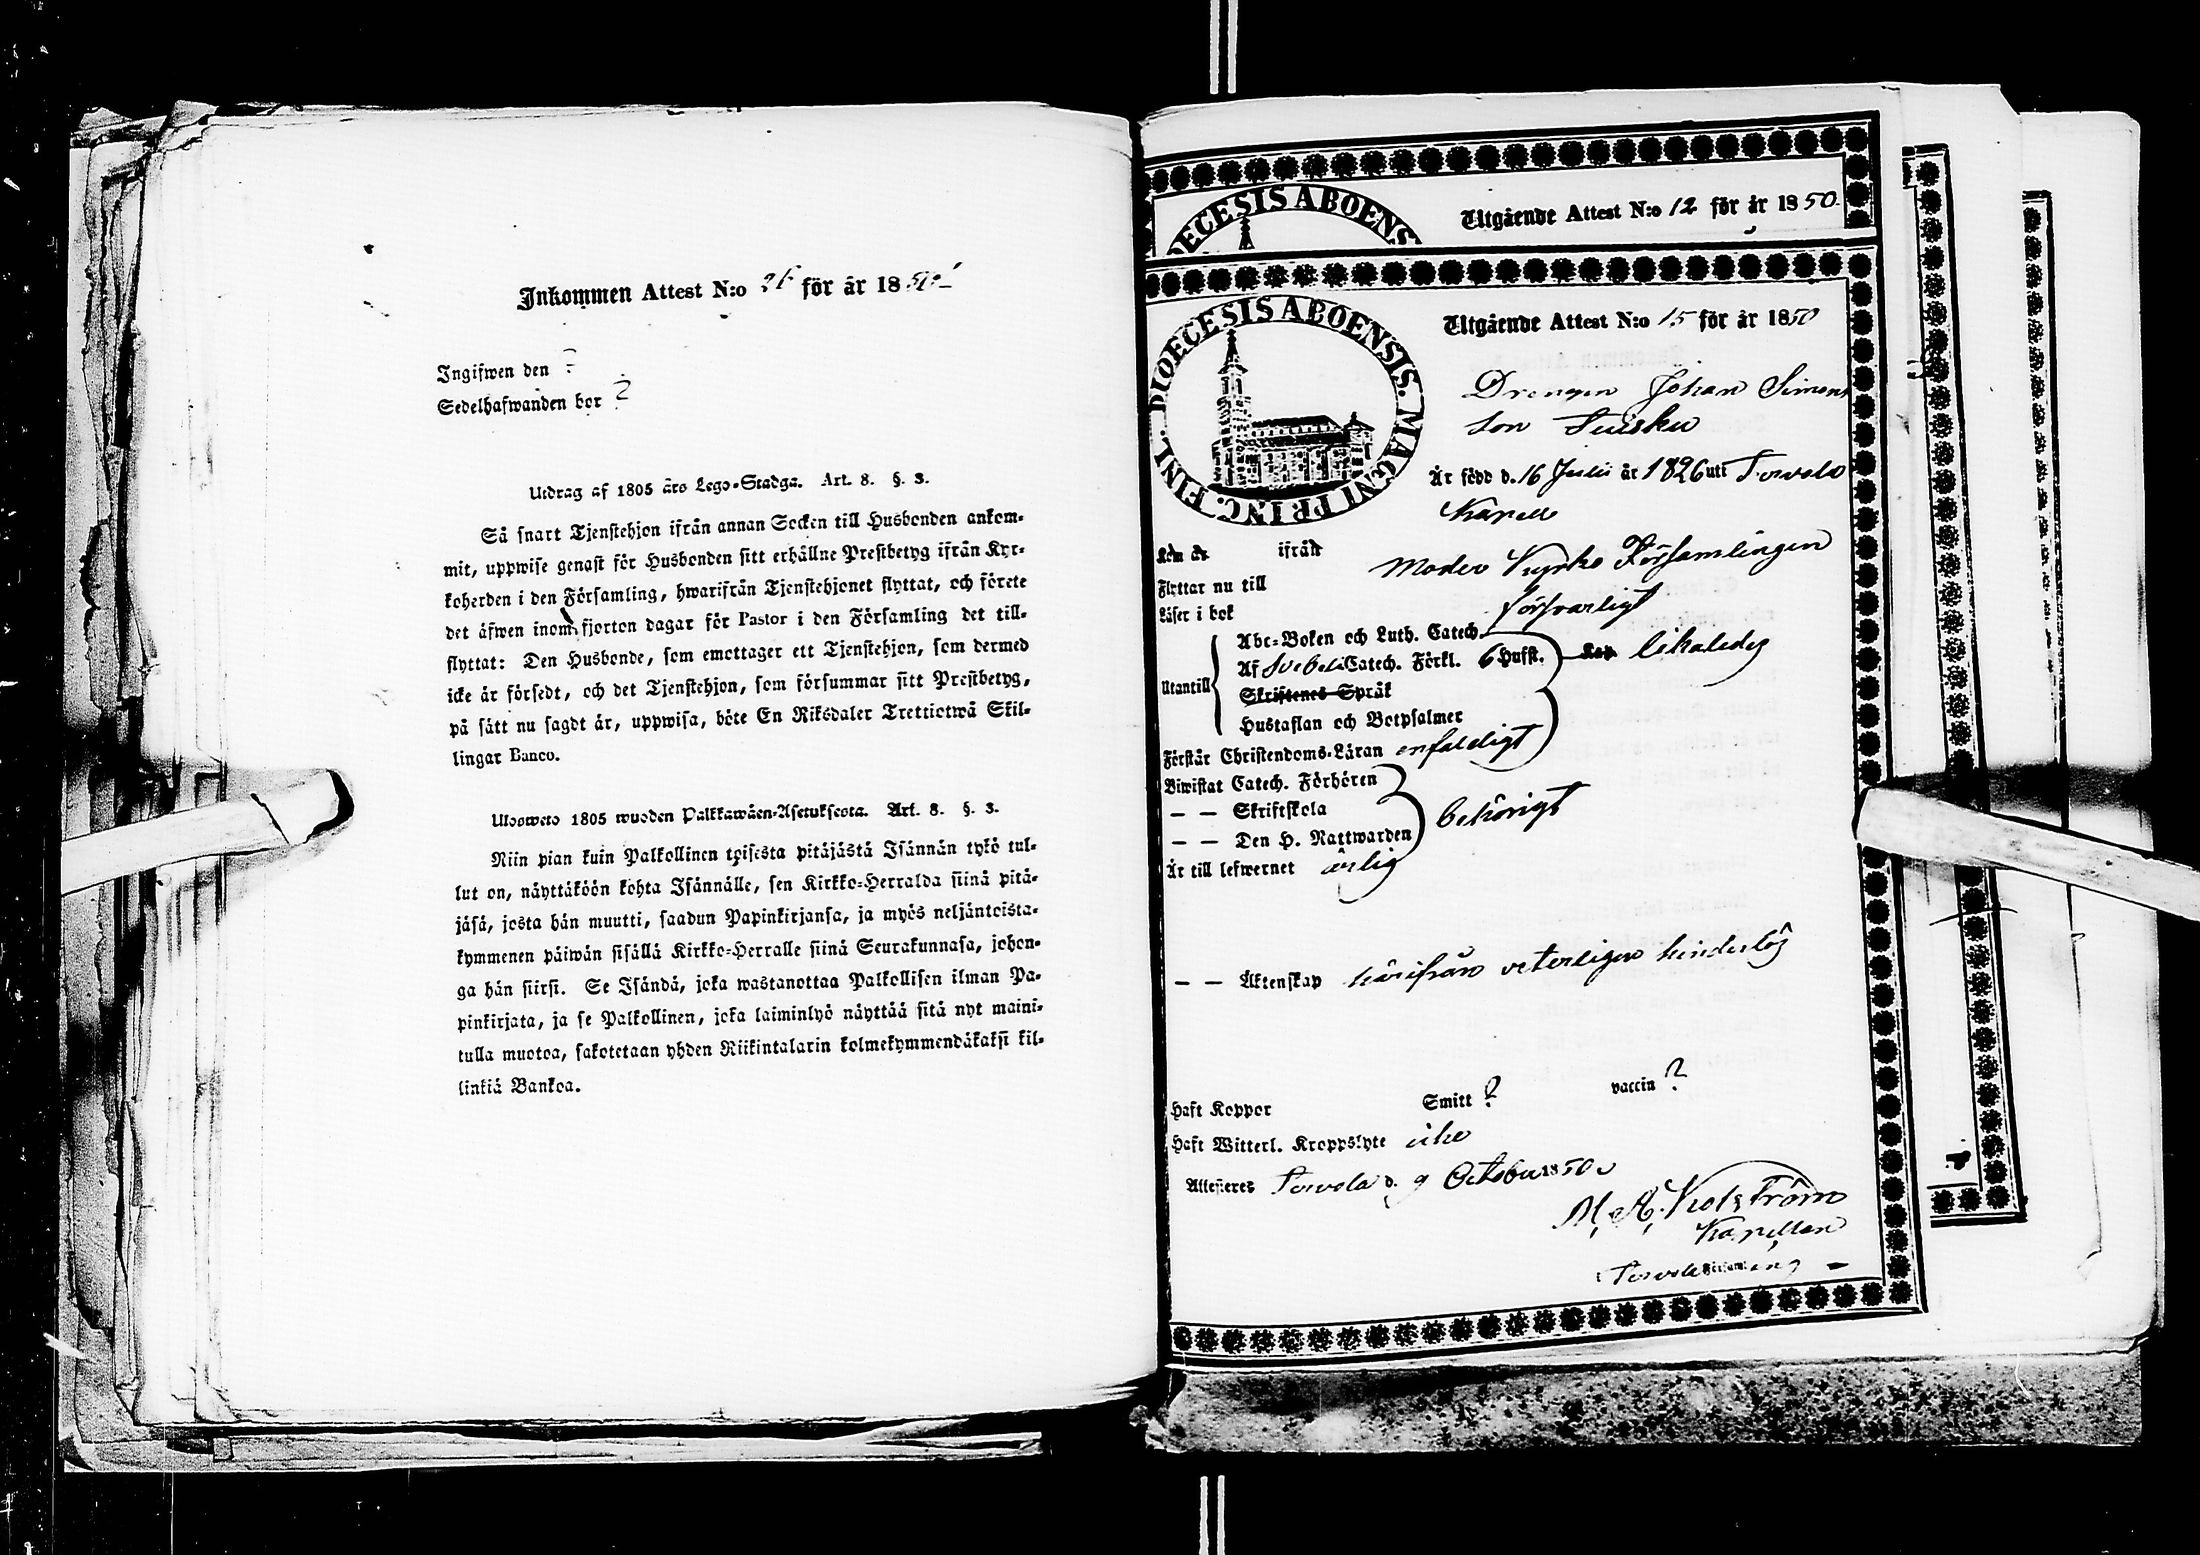 Inkommen Attest N:o för år 18
Ingifwen den ?
Sedelhafwanden bor ?
Utdrag af 1805 års Lego-Stadga. Art. 8. §. 3.
Så snart Tjenstehjon ifrån annan Socken till Husbonden ankom-
mit, uppwise genast för Husbonden sitt erhållne Prestbetyg ifrån Kyr-
koherden i den Församling, hwarifrån Tjenstehjonet flyttat, och förete
det äfwen inom fjorton dagar för Pastor i den Församling det till-
flyttat: Den Husbonde, som emottager ett Tjenstehjon, som dermed
icke är försedt, och det Tjenstehjon, som försummar sitt Prestbetyg,
på sätt nu sagdt är, uppwisa, böte En Riksdaler Trettiotwå Skil-
lingar Banco.
Ulosweto 1805 wuoden Palkkawäen-Asetuksesta. Art. 8. §. 3.
Niin pian kuin Palkollinen toisesta pitäjästä Isännän tykö tul-
lut on, näyttäköön kohta Isännälle, sen Kirkko-Herralda siinä pitä-
jäsä, josta hän muutti, saadun Papinkirjansa, ja myös neljäntoista-
kymmenen päiwän sisällä Kirkko-Herralle siinä Seurakunnasa, johon-
ga hän siirsi. Se Isändä, joka wastanottaa Palkollisen ilman Pa-
pinkirjata, ja se Palkollinen, joka laiminlyö näyttää sitä nyt maini-
tulla muotoa, sakotetaan yhden Riikintalarin kolmekymmendäkaksi kil-
linkiä Bankoa.
DIOECESIS ABOENS
Utgående Attest N:o 12 för år 1850
DIOECESIS ABOENSIS. MAGNI PRINC. FINL.
Utgående Attest N:o 15 för år 1850
Drengen Johan Simons
son Tuisku
Är född d. 16 Julii år 1826 uti Tervola
Kapell
Kom år ifrån
Flyttar nu till Moder Kyrko Församlingen
Läser i bok försvarligt
Utantill
Abc-Boken och Luth. Catech.
Af Svebelii Catech. Förkl. 6 Hufst. likaledes
Skriftenes Språk
Hustaflan och Botpsalmer
Förstår Christendoms-Läran enfaldigt
Biwistat Catech. Förhören
— — Skriftskola behörigt
— — Den H. Nattwarden
Är till lefwernet ärlig
— — Äktenskap härifrån veterligen hinderlös
Haft Koppor Smitt ? vaccin ?
Haft Witterl. Kroppslyte icke
Attesteres Tervola d. 9 October 1850
M. A.
Kapellan
i Tervola Församling